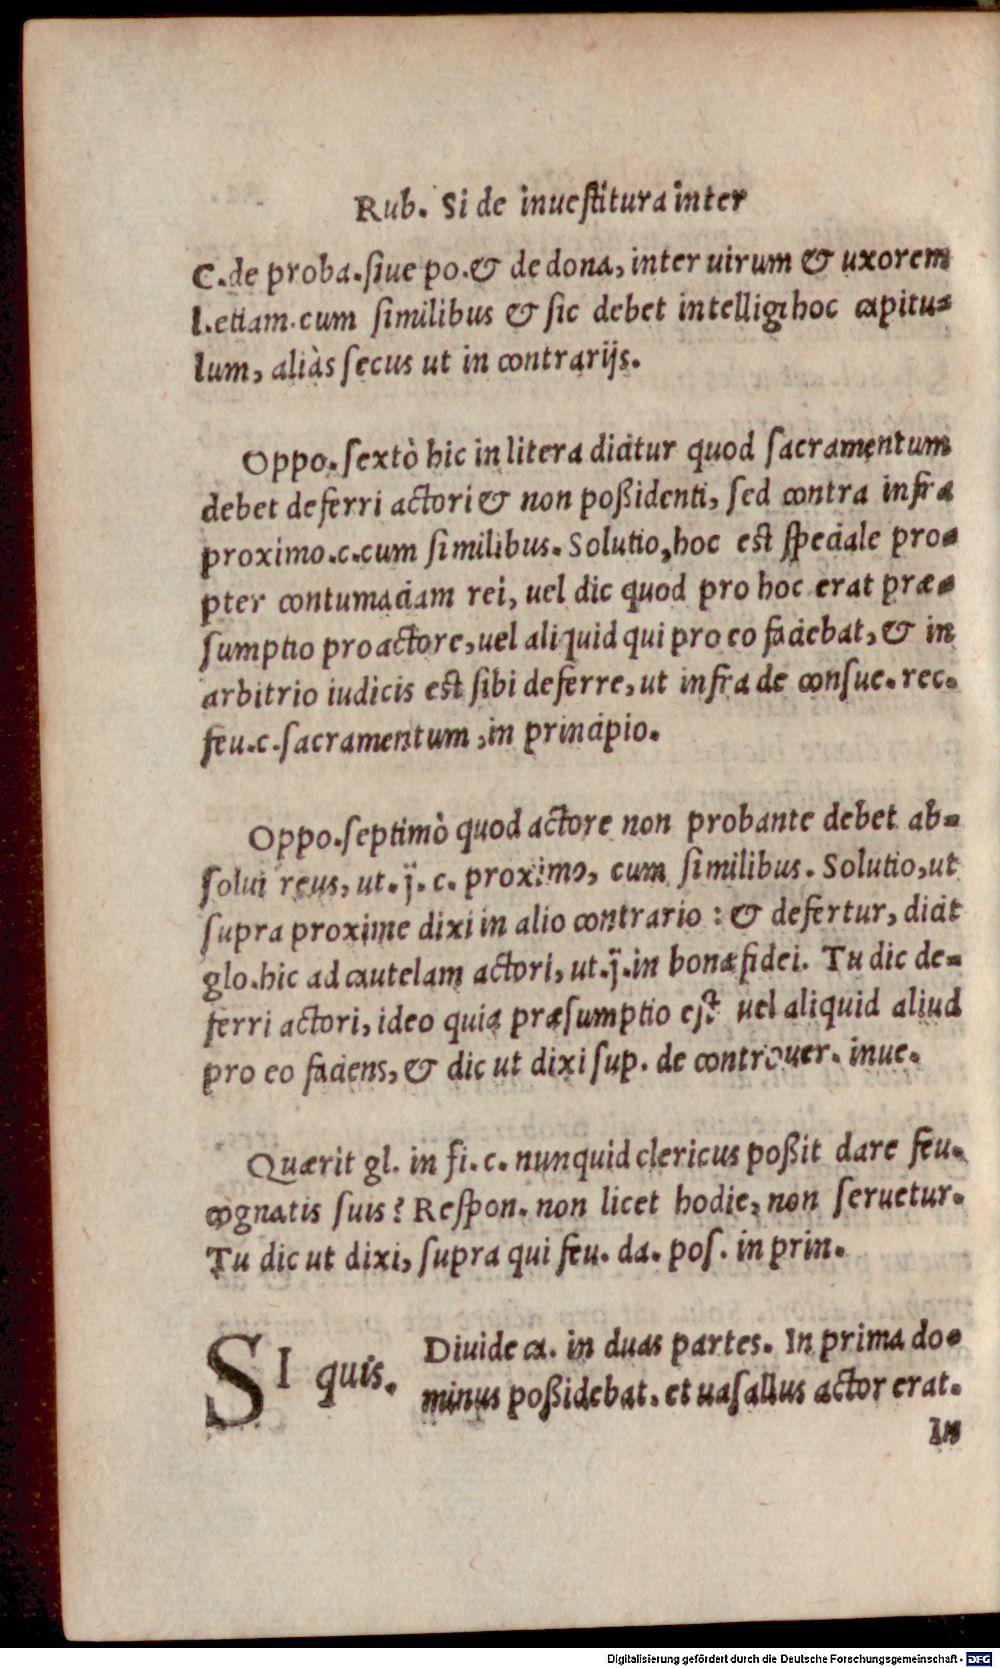 Rub. Si de inuestitura inter
C. de proba. siue po. & de dona, inter uirum & uxorem
l. etiam. cum similibus & sic debet intelligi hoc capitu-
lum, aliàs secus ut in contrarijs.
Oppo. sextò hic in litera dicitur quod sacramentum
debet deferri actori & non poßidenti, sed contra infra
proximo. c. cum similibus. Solutio, hoc est speciale pro-
pter contumaciam rei, uel dic quod pro hoc erat præ-
sumptio pro actore, uel aliquid qui pro eo faciebat, & in
arbitrio iudicis est sibi deferre, ut infra de consue. rec.
feu. c. sacramentum, in principio.
Oppo. septimò quod actore non probante debet ab-
solui reus, ut. j. c. proximo, cum similibus. Solutio, ut
supra proxime dixi in alio contrario : & defertur, dicit
glo. hic ad cautelam actori, ut. j. in bonæ fidei. Tu dic de-
ferri actori, ideo quia præsumptio est uel aliquid aliud
pro eo faciens, & dic ut dixi sup. de controuer. inue.
Quærit gl. in fi. c. nunquid clericus poßit dare feu.
cognatis suis? Respon. non licet hodie, non seruetur.
Tu dic ut dixi, supra qui feu. da. pos. in prin.
SI quis. Diuide ca. in duas partes. In prima do-
minus poßidebat. et uasallus actor erat.
In
Digitalisierung gefördert durch die Deutsche Forschungsgemeinschaft - DFG